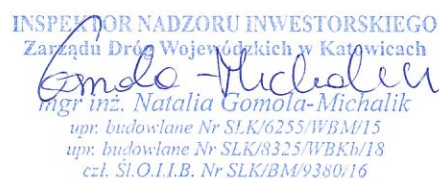 INSPEKTOR NADZORU INWESTORSKIEGO
Zarządu Dróg Wojewódzkich w Katowicach
Gomola-Michalik
mgr inż. Natalia Gomola-Michalik
upr. budowlane Nr SLK/6255/WBM/15
upr. budowlane Nr SLK/8325/WBKb/18
czł. Śl.O.I.I.B. Nr SLK/BM/9380/16